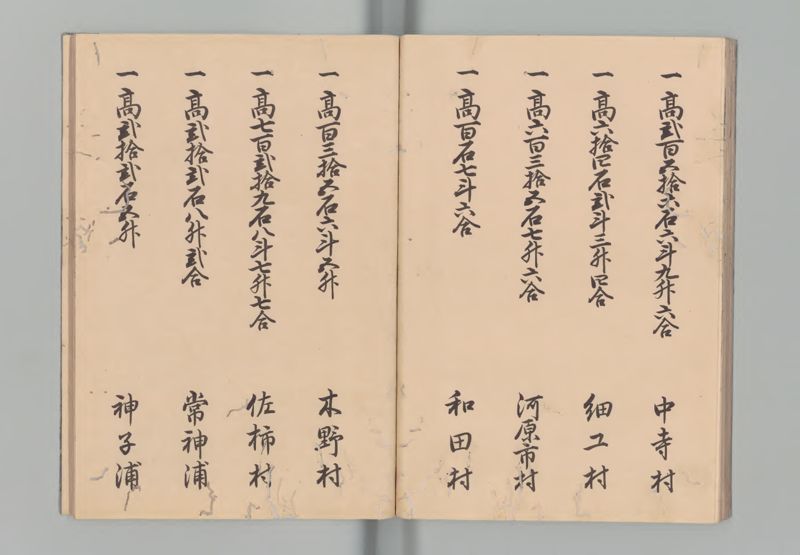 一高弐百五拾六石六斗九升六合 中寺村
一高六拾四石弐斗三升四合 細工村
一高六百三拾五石七升六合 河原市村
一高百石七斗六合 和田村
一高百三拾五石六斗五升 木野村
一高七百弐拾九石八斗七升七合 佐柿村
一高弐拾弐石八升弐合 常神浦
一高弐拾弐石五升 神子浦